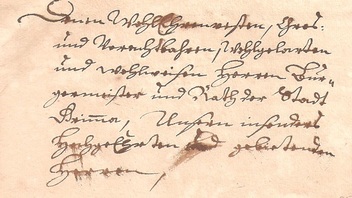 Denen WohlEhrenvesten, Gros-
und Vorachtbahren, Wohlgelarten
und Wohlweisen Herren Bür-
germeister und Rath der Stadt
Grimma, Unsern insonders
HochgeEhrten und gebietenden
Herren,